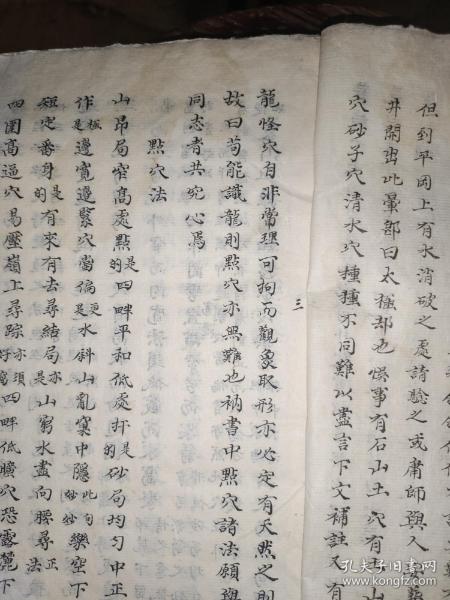 但到平岡上有水消破之處請驗之或庸師與人
井開出此暈卽曰太極却也悞事有石山土穴有土山
穴砂子穴清水穴種種不同難以盡言下文補註又有
三
龍怪穴自非常理可拘而觀象取形亦必定有天然之則
故曰苟能識龍則點穴亦無難也衲書中點穴諸法願與
同志者共究心焉
點穴法
山昂局窄高處點是的四畔平和低處扦是的砂局均勻中正
作極是邊寬邊緊穴當偏更是水斜山亂窠中隱此句妙妙樂空下
短定番身是的有來有去尋結局亦是山窮水盡向腰尋正法
四圍高逼穴易壓嶺上尋踪亦須好窩四畔低曠穴恐露麓下